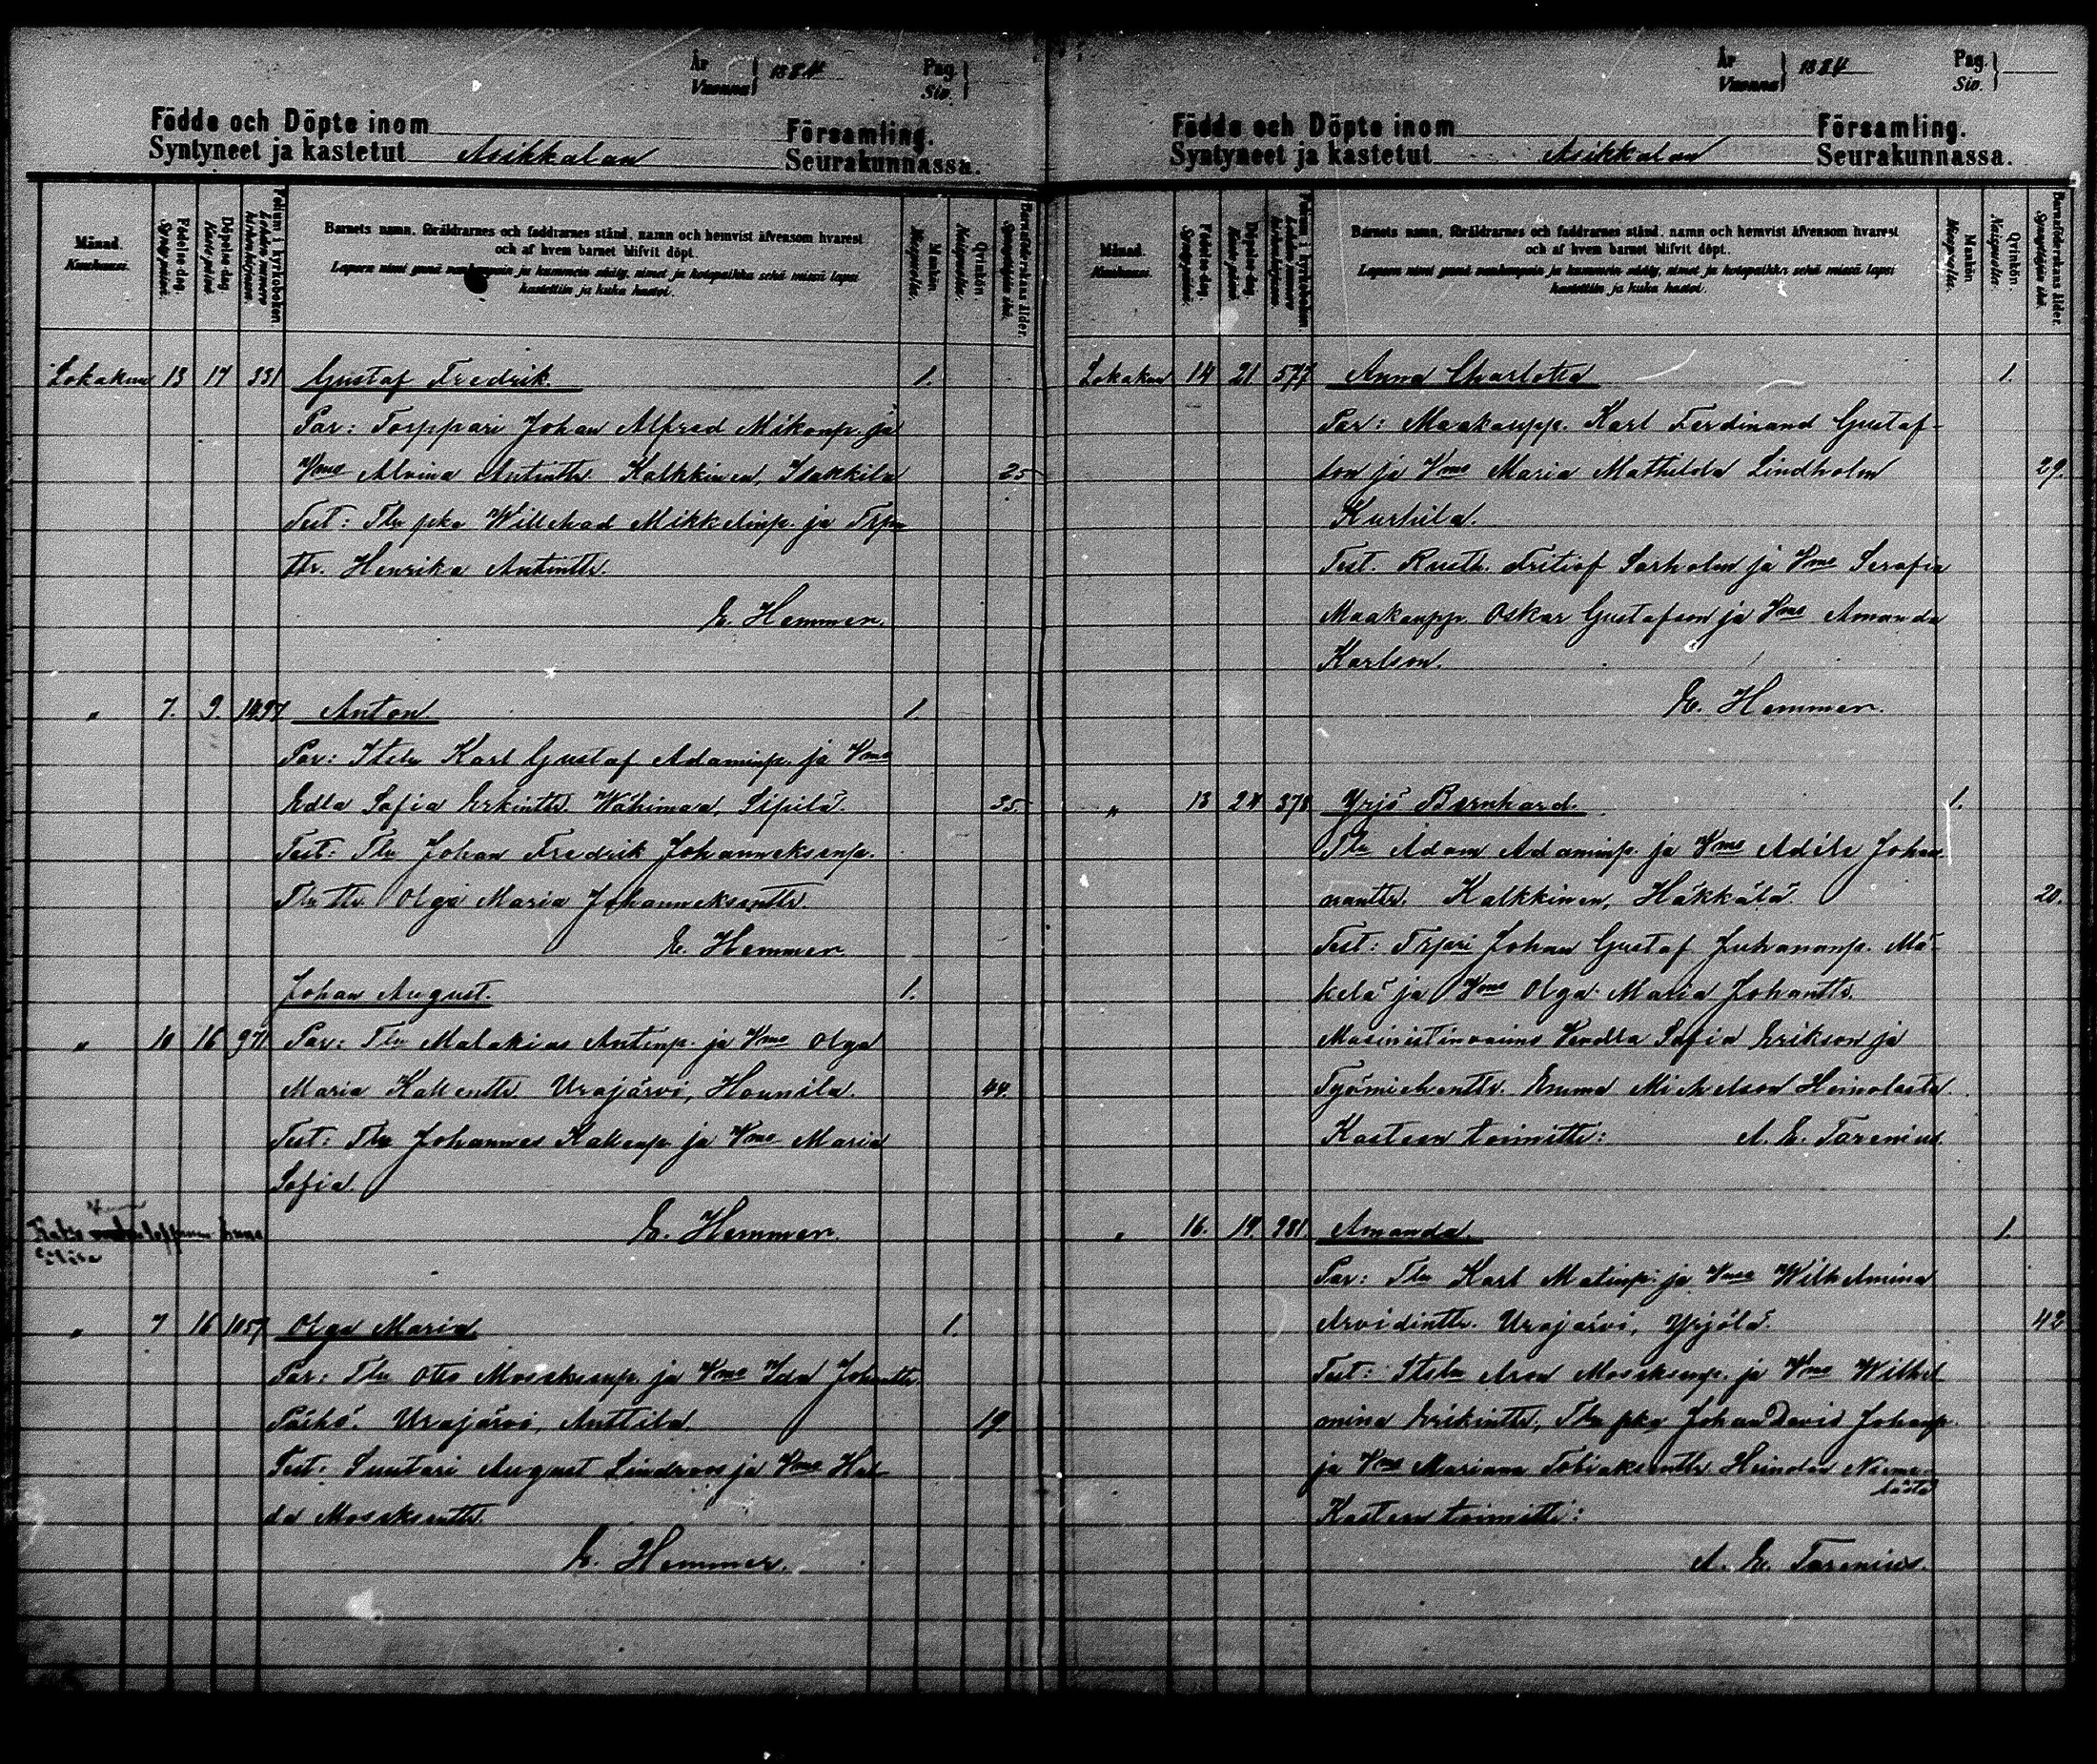 År
Vuonna } 1884
Pag.
Siv. }
Födde och Döpte inom
Församling.
Syntyneet ja kastetut Asikkalan Seurakunnassa.
Månad.
Kuukausi.
Födelse-dag.
Syntymäpäivä.
Döpelse-dag.
Kastepäivä.
Folium i kyrkoboken.
Barnets namn, föräldrarnes och faddrarnes stånd, namn och hemvist äfvensom hvarest
och af hvem barnet blifvit döpt.
Lapsen nimi ynnä vanhempain ja kummein sääty, nimet ja kotopaikka sekä missä lapsi
kastettiin ja kuka kastoi.
Mankön.
Miespuolia.
Qvinkön.
Naispuolia.
Barnaföderskans ålder.
Synnyttäjän ikä.
Lokakuu 13 17 331 Gustaf Fredrik. 1.
Par: Torppari Johan Alfred Mikonp. ja
Vmo Alvina Antintr. Kalkkinen, Isakkila 25
Test: Tln pka Willehad Mikkelinp. ja Trpn
ttr. Henrika Antinttr.
E. Hemmer.
" 7. 9. 1497 Anton. 1.
Par: Itsln Karl Gustaf Adaminp. ja Vmo
Edla Sofia Erkinttr. Wähimaa, Sipilä. 35.
Test: Tln Johan Fredrik Johanneksenp.
Tln ttr Olga Maria Johanneksenttr.
E. Hemmer
Johan August. 1.
" 10 16 971 Par: Tln Malakias Antinp. ja Vmo Olga
Maria Kallenttr. Urajärvi, Hounila. 44.
Test: Tln Johannes Kallenp. ja Vmo Maria
Sofia.
E. Hemmer.
" 7 16 1057 Olga Maria 1.
Par: Tln Otto Mooseksenp. ja Vmo Ida Johanttr
Urajärvi, Anttila. 19.
Test: Suutari August Lindroos ja Vmo Hil-
da Mooseksenttr.
E. Hemmer.
År
Vuonna } 1884
Pag.
Siv. }
Födde och Döpte inom
Församling.
Syntyneet ja kastetut Asikkalan Seurakunnassa.
Månad.
Kuukausi.
Födelse-dag.
Syntymäpäivä.
Döpelse-dag.
Kastepäivä.
Folium i kyrkoboken.
Barnets namn, föräldrarnes och faddrarnes stånd, namn och hemvist äfvensom hvarest
och af hvem barnet blifvit döpt.
Lapsen nimi ynnä vanhempain ja kummein sääty, nimet ja kotopaikka sekä missä lapsi
kastettiin ja kuka kastoi.
Mankön
Miespuolia.
Qvinkön.
Naispuolia.
Barnaföderskans ålder.
Synnyttäjän ikä.
Lokakuu 14 21 577 Anna Charlotta 1.
Par: Maakaupp. Karl Ferdinand Gustaf-
son ja Vmo Maria Mathilda Lindholm 29.
Kurhila.
Test. Rusth. Fritiof Sarholm ja Vmo Serafia
Maakaupp. Oskar Gustafson ja Vmo Amanda
Karlson.
E. Hemmer.
" 13 24 378 Yrjö Bernhard. 1.
Tln Adam Adaminp. ja Vmo Adila Johan
nanttr. Kalkkinen, Häkkälä. 20.
Test: Trpri Johan Gustaf Juhananp. Mä-
kelä ja Vmo Olga Maria Johanttr.
Masinistinvaimo Vendla Sofia Erikson ja
Työmiehenttr. Emma Michelson Heinolasta.
Kasteen toimitti: A. E. Tarenius.
" 16. 19. 981. Amanda. 1.
Par: Tln Karl Matinp. ja Vmo Wilhelmina
Arvidinttr. Urajärvi, Yrjölä. 42
Test: Itsln Aron Mooseksenp. ja Vmo Wilhel
mina Erikinttr, Tln pka Johan David Johanp.
ja Vmo Mariana Tobiaksenttr. Heinolan
Kasteen toimitti:
A. E. Tarenius.